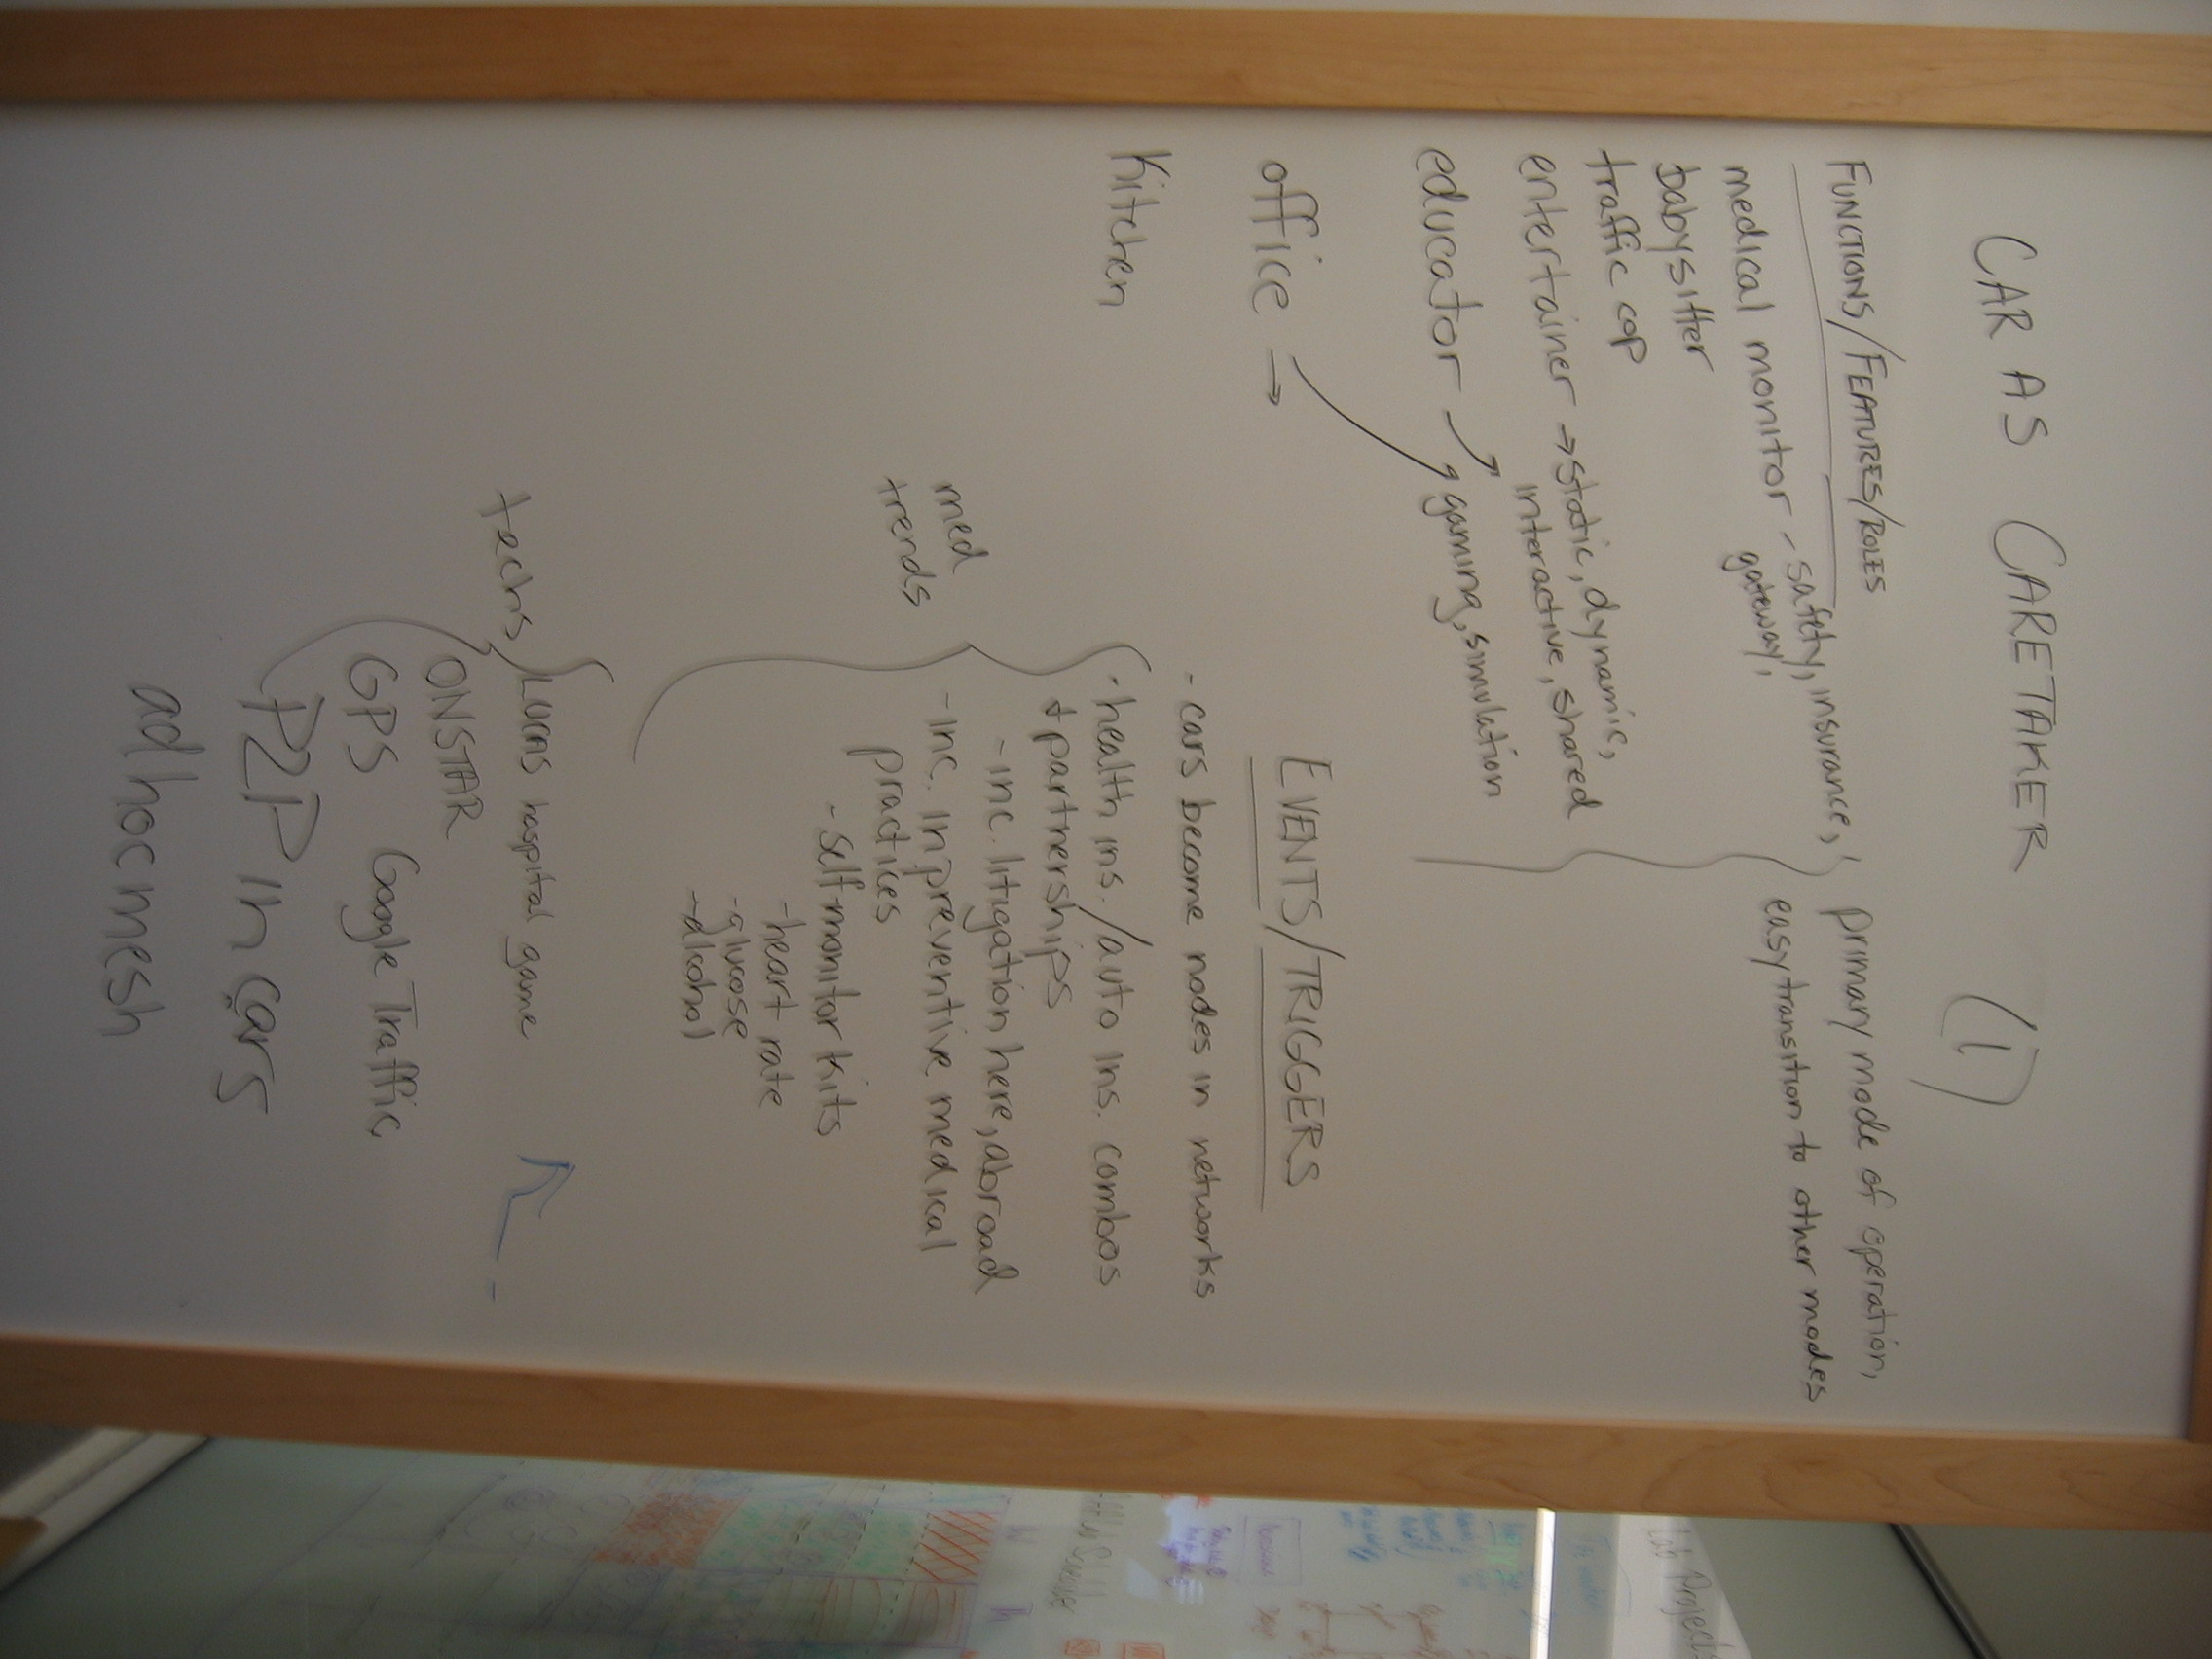 CAR AS CARETAKER (1)
FUNCTIONS/FEATURES/ROLES
medical monitor - safety, insurance,
gateway,
babysitter
traffic cop
entertainer → static, dynamic,
interactive, shared
educator
gaming, simulation
office →
kitchen
primary mode of operation,
easy transition to other modes
EVENTS/TRIGGERS
- cars become nodes in networks
med
trends
- health ins. / auto ins. combos
+ partnerships
- inc. litigation here, abroad
- inc. in preventive medical
practices
- self-monitor kits
- heart rate
- glucose
- alcohol
techs
Lucas hospital game
ONSTAR
GPS Google Traffic,
P2P in cars
adhoc mesh
Lab Projects